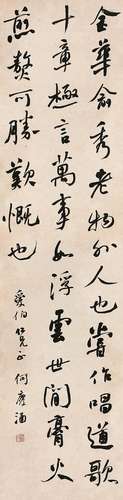 金華俞秀老物外人也嘗作唱道歌
十章極言萬事如浮雲世間膏火
煎熬可勝歎慨也
愛伯仁兄正 何慶涵